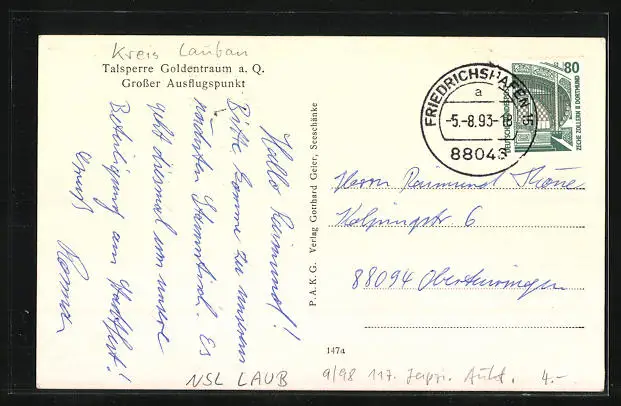 Kreis Lauban
Talsperre Goldentraum a. Q.
Großer Ausflugspunkt
Hallo Raimund!
Bitte komme zu unserem
nächsten Stammtisch. Es
geht diesmal um unsere
Beteiligung am Stadtfest!
Gruß
P.A.K.G. Verlag Gotthard Geier, Seeschänke
FRIEDRICHSHAFEN
a
-5.-8.93-18
88045
80
DEUTSCHE BUNDESPOST
ZECHE ZOLLERN II DORTMUND
Herrn Raimund
Kolpingstr. 6
88094 Oberteuringen
147a
NSL LAUB
9/98 117. Leipz. Aukt. 4.-